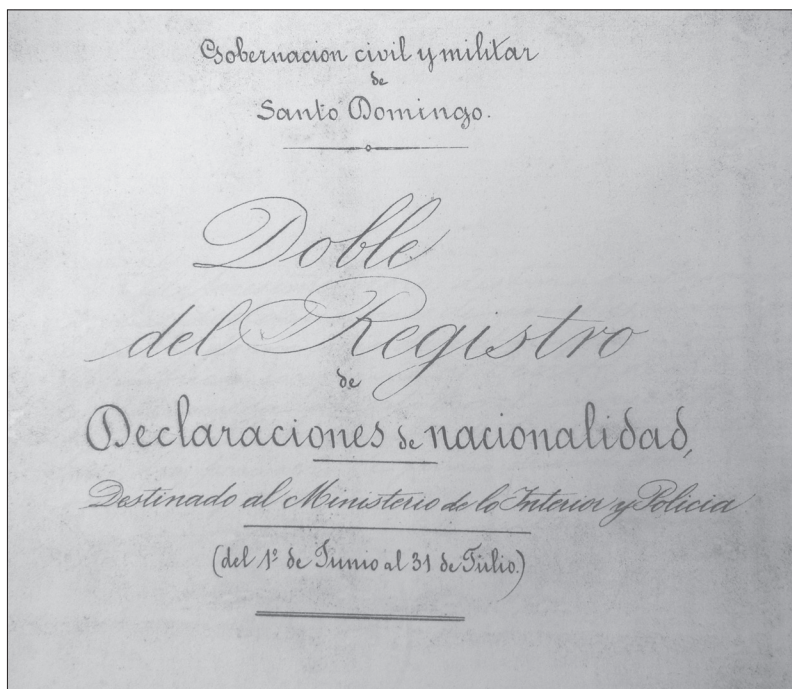 Gobernacion civil y militar
de
Santo Domingo.
Doble
del Registro
de
Declaraciones de nacionalidad,
Destinado al Ministerio de lo Interior y Policia
(del 1º de Junio al 31 de Julio.)